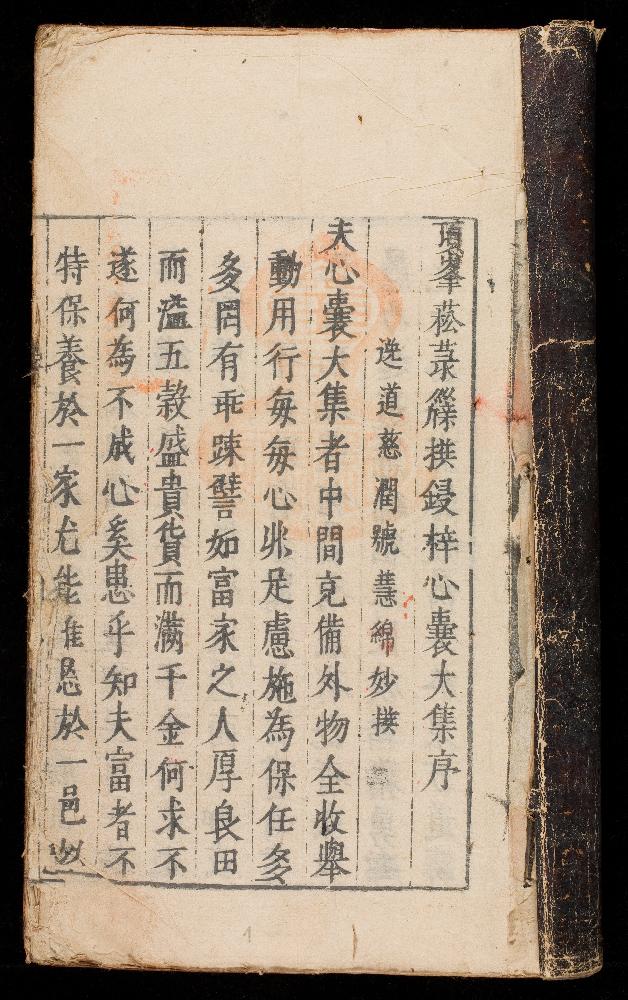 頂峯菘彔繇撰鋟梓心囊大集序
逸道慈潤號慧綿妙撰
夫心囊大集者中間克備外物全收舉
動用行每每心非足慮施為保任多
多罔有乖踈譬如富家之人厚良田
而溢五穀盛貴貨而滿千金何求不
遂何為不成心奚患乎知夫富者不
特保養於一家尤能推恩於一邑